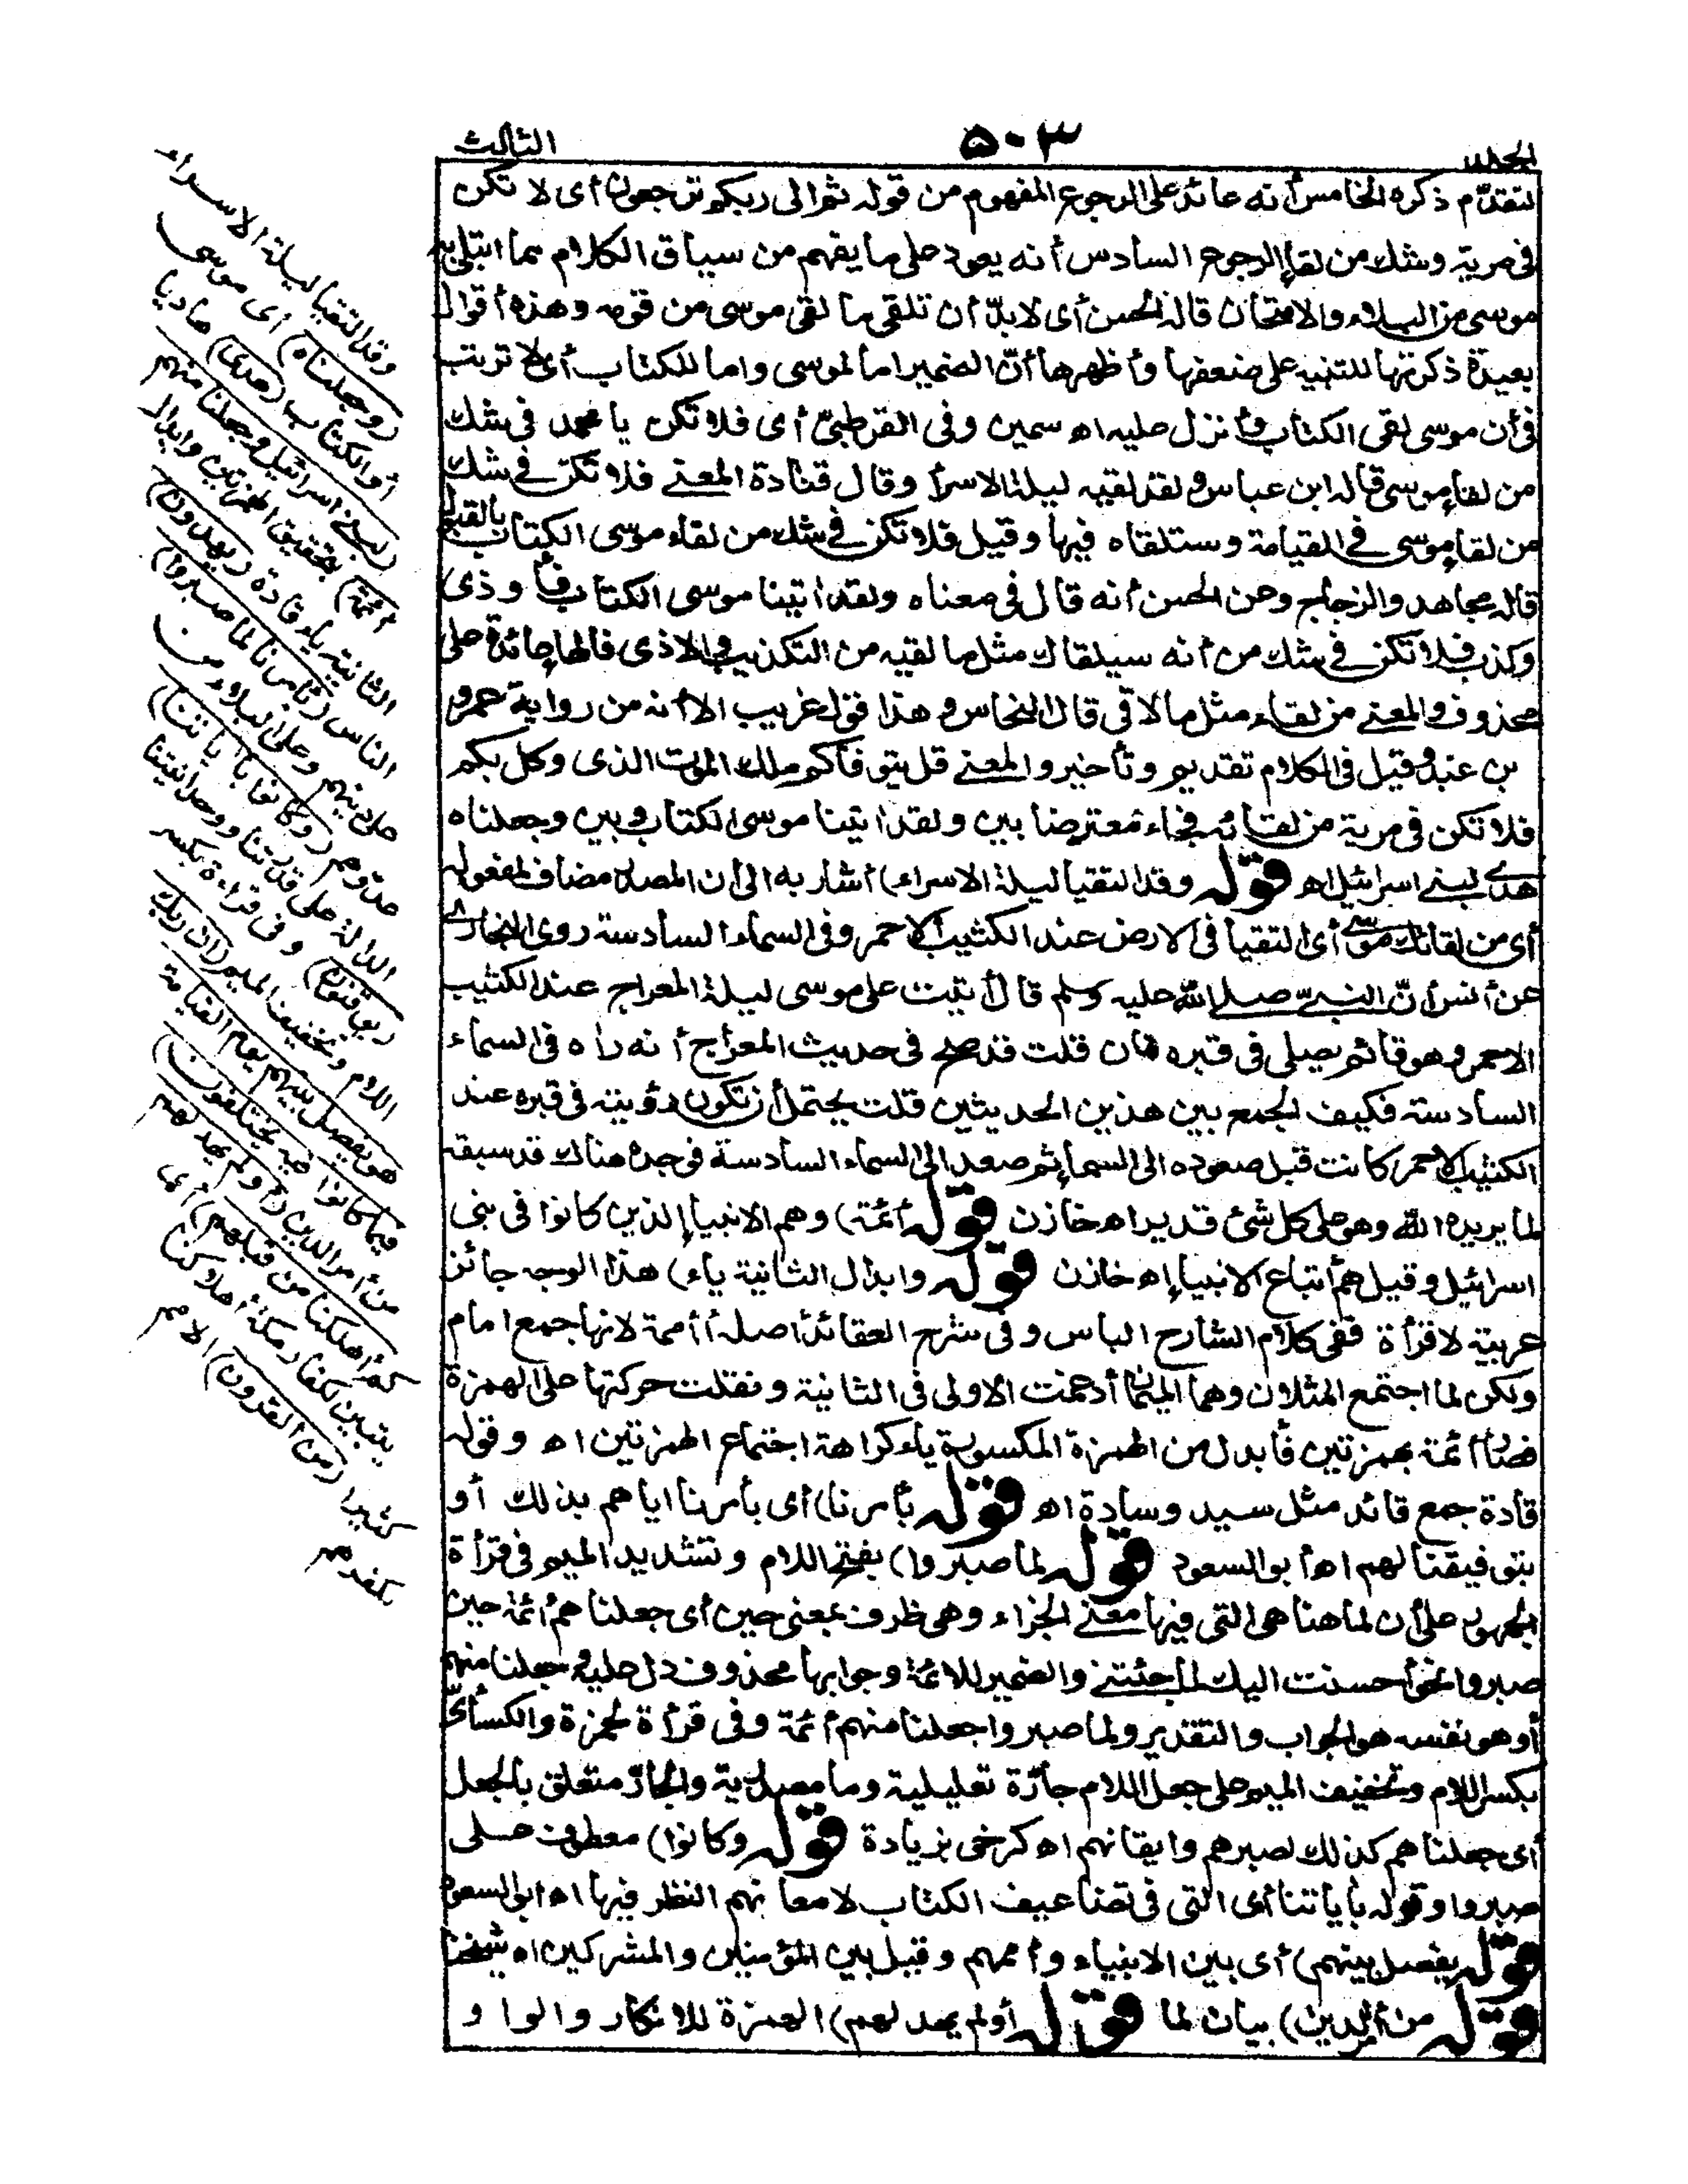 الجلد
٥٠٣
الثالث
لتقدّم ذكره الخامس أنه عائد على الرجوع المفهوم من قوله ثم الى ربكم ترجعون أى لا تكن
فى مرية وشك من لقاء الرجوع السادس أنه يعود على ما يفهم من سياق الكلام مما ابتلى به
موسى من البلاء والامتحان قاله الحسن أى لابدّ أن تلقى ما لقى موسى من قومه وهذه أقوال
بعيدة ذكرتها للتنبيه على ضعفها وأظهرها أنّ الضمير اما لموسى واما للكتاب أى لا ترتب
فى أن موسى لقى الكتاب وأنزل عليه اه سمين وفى القرطبىّ أى فلا تكن يا محمد فى شك
من لقاء موسى قاله ابن عباس ولقد لقيه ليلة الاسراء وقال قتادة المعنے فلا تكن فے شك
من لقاء موسى فے القيامة وستلقاه فيها وقيل فلا تكن فے شك من لقاء موسى الكتاب بالقبول
قاله مجاهد والزجاج وعن الحسن أنه قال فى معناه ولقد اٰتينا موسى الكتاب فأوذى
وكذب فلا تكن فے شك من أنه سيلقاك مثل ما لقيه من التكذيب والاذى فالهاء عائدة على
محذوف والمعنے من لقاء مثل ما لاقى قال النحاس وهذا قول غريب الا أنه من رواية عمرو
بن عبيد وقيل فى الكلام تقديم وتأخير والمعنے قل يتوفاكم ملك الموت الذى وكل بكم
فلا تكن فى مرية من لقائه فجاء معترضا بين ولقد اٰتينا موسى الكتاب وبين وجعلناه
هدے لبنے اسرائيل اه قوله وقد التقيا ليلة الاسراء) أشار به الى أن المصدر مضاف لمفعوله
أى من لقائك موسے أى التقيا فى الارض عند الكثيب الاحمر وفى السماء السادسة روى البخارے
عن أنس أنّ النبےّ صلے اللّٰه عليه وسلم قال أتيت على موسى ليلة المعراج عند الكثيب
الاحمر وهو قائم يصلى فى قبره فان قلت قد صح فى حديث المعراج أنه راٰه فى السماء
السادسة فكيف الجمع بين هذين الحديثين قلت يحتمل أن تكون رؤيته فى قبره عند
الكثيب الاحمر كانت قبل صعوده الى السماء ثم صعد الى السماء السادسة فوجده هناك قد سبقه
لما يريده اللّٰه وهو على كل شئ قدير اه خازن قوله أئمة) وهم الانبياء الذين كانوا فى بنى
اسرائيل وقيل هم أتباع الانبياء اه خازن قوله وابدال الثانية ياء) هذا الوجه جائز
عربية لا قرأة ففى كلام الشارح الباس وفى شرح العقائد أصله أأممة لانها جمع امام
ولكن لما اجتمع المثلان وهما الميمان أدغمت الاولى فى الثانية ونقلت حركتها على الهمزة
فصار أئمة بهمزتين فأبدل من الهمزة المكسورة ياء كراهة اجتماع الهمزتين اه وقوله
قادة جمع قائد مثل سيد وسادة اه قوله بأمرنا) أى بأمرنا اياهم بذلك أو
بتوفيقنا لهم اه أبو السعود قوله لما صبروا) بفتح اللام وتشديد الميم فى قرأة
الجمهور على أن لما هنا هى التى فيها معنے الجزاء وهى ظرف بمعنى حين أى جعلناهم أئمة حين
صبروا نحو أحسنت اليك لما جئتنے والضمير للائمة وجوابها محذوف دل عليه وجعلنا منهم
أو هو نفسه هو الجواب والتقدير ولما صبروا جعلنا منهم أئمة وفى قرأة لحمزة والكسائىّ
بكسر اللام وتخفيف الميم على جعل اللام جارّة تعليلية وما مصدرية والجارّ متعلق بالجعل
أى جعلناهم كذلك لصبرهم وايقانهم اه كرخى بزيادة قوله وكانوا) معطوف على
صبروا وقوله بآياتنا أى التى فى تضاعيف الكتاب لامعانهم النظر فيها اه ابو السعود
قوله يفصل بينهم) أى بين الانبياء وأممهم وقيل بين المؤمنين والمشركين اه شيخنا
قوله من أمر الدين) بيان لما قوله أولم يهد لهم) الهمزة للانكار والواو
وقد التقيا ليلة الاسراء
(وجعلناه) أى موسى
أو الكتاب (هدى) هاديا
(لبنے اسرائيل وجعلنا منهم
أئمة) بتحقيق الهمزتين وابدال
الثانية ياء قادة (يهدون)
الناس (بأمرنا لما صبروا)
على دينهم وعلى البلاء من
عدوهم (وكانوا بآياتنا)
الدالة على قدرتنا ووحدانيتنا
(يوقنون) وفى قراءة بكسر
اللام وتخفيف الميم (ان ربك
هو يفصل بينهم يوم القيامة
فيما كانوا فيه يختلفون)
من أمر الدين (أولم يهد لهم
كم أهلكنا من قبلهم) أى
يتبين لكفار مكة أهلاكنا
كثيرا (من القرون) الامم
بكفرهم